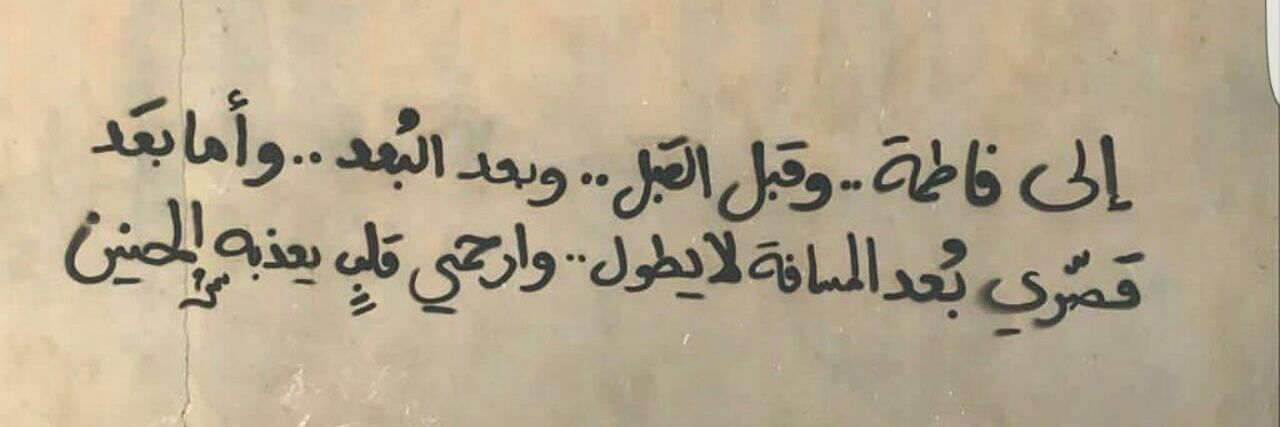 إلى فاطمة .. وقبل القَبل .. وبعد البُعد .. وأما بعَد
قصّري بُعد المسافة لا يطول .. وارحمي قلبٍ يعذبه الحنين